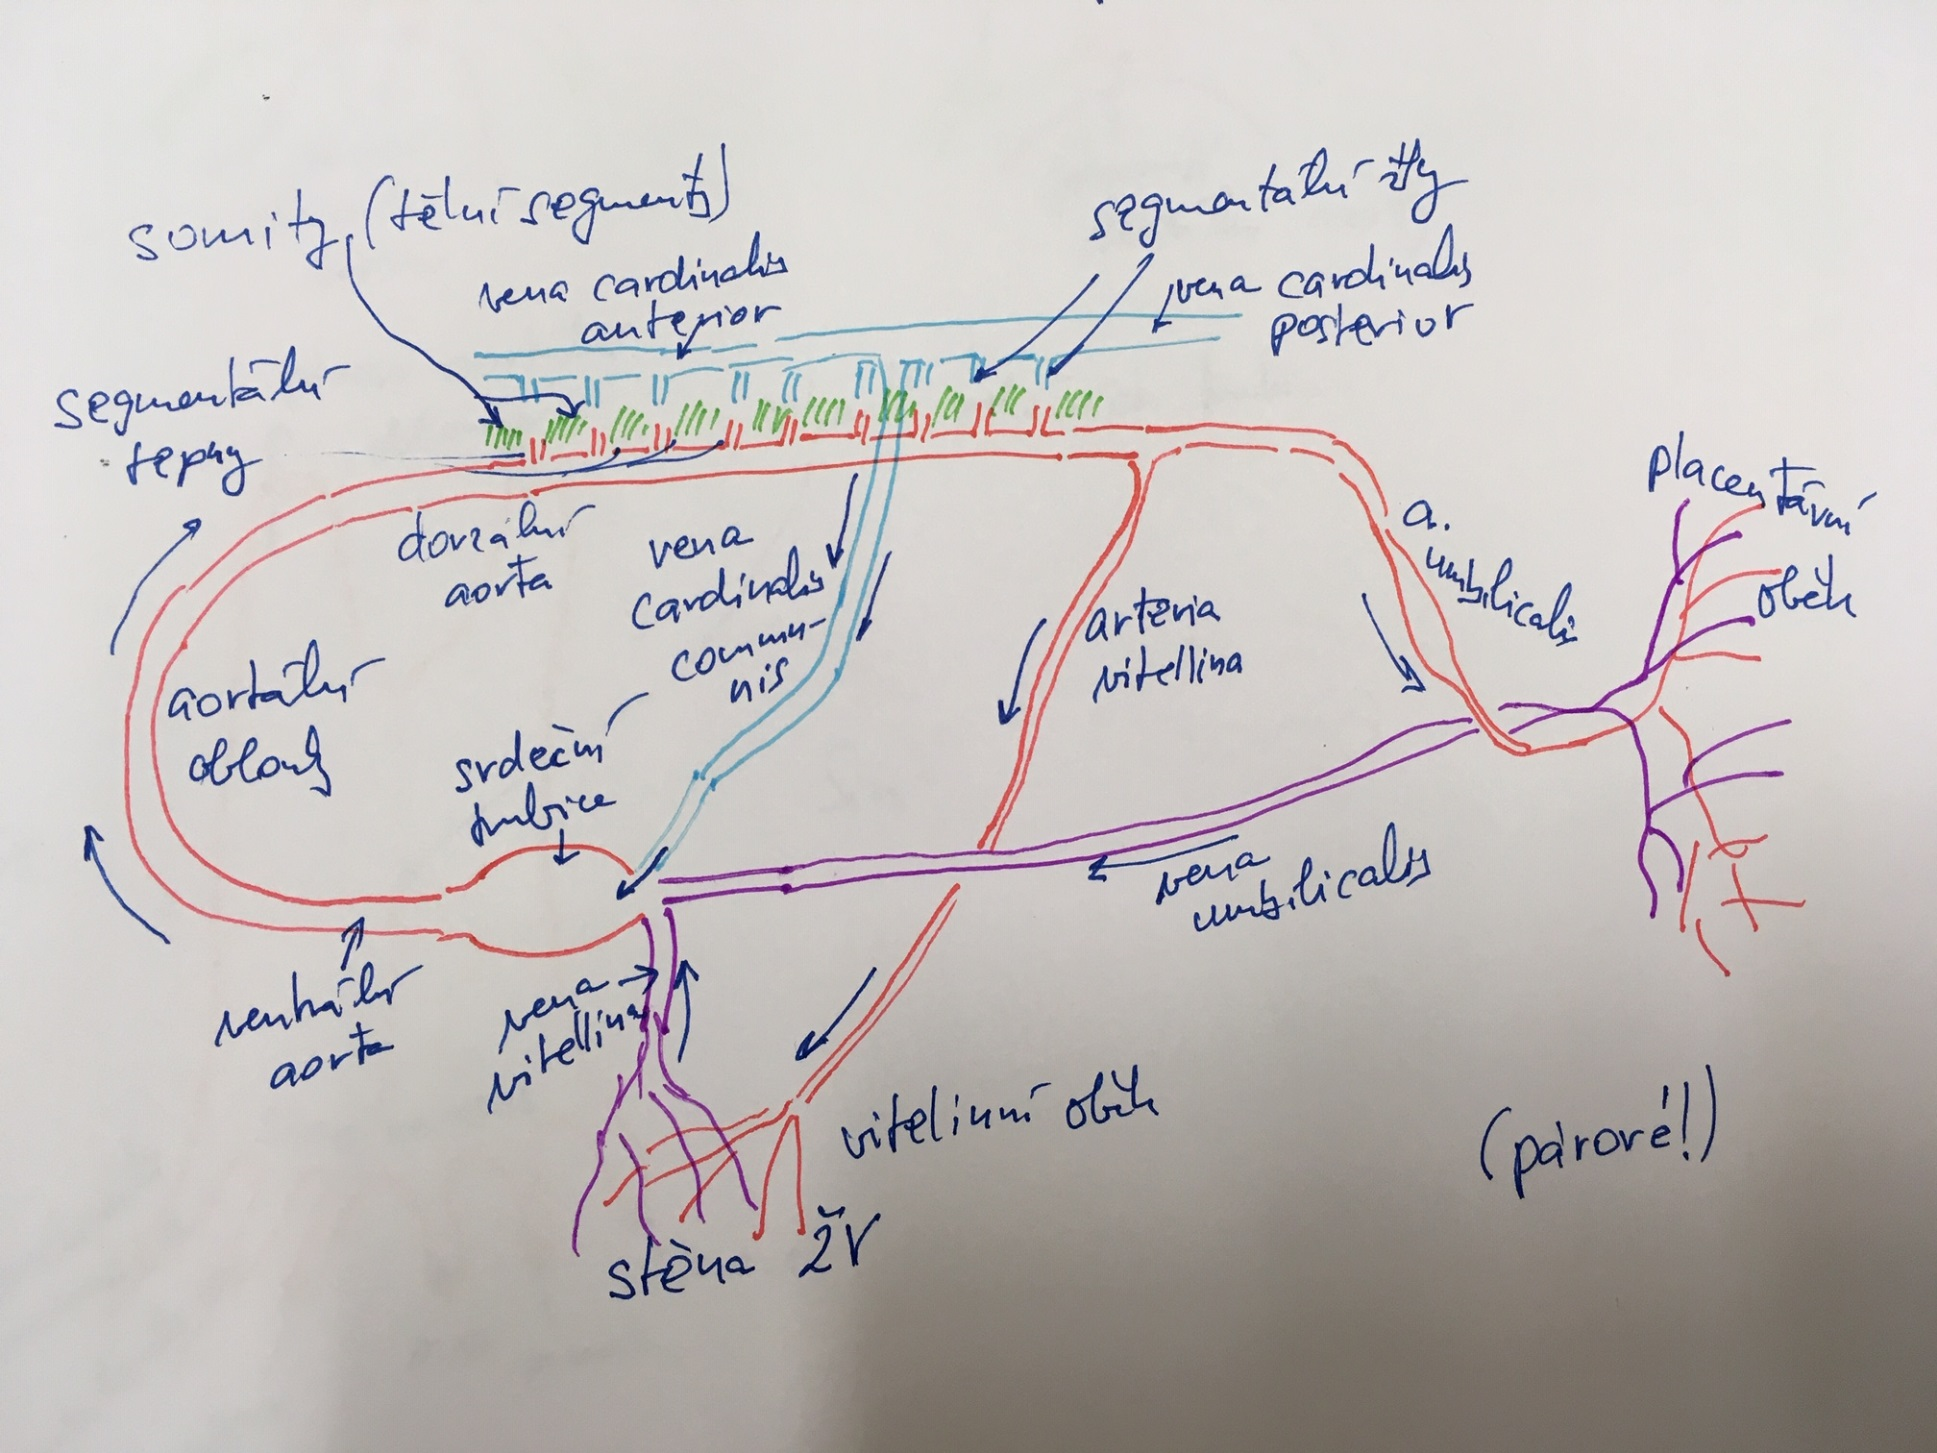 somity (tělní segmenty)
segmentální žíly
vena cardinalis
anterior
vena cardinalis
posterior
segmentální
tepny
placentární
oběh
dorzální
aorta
vena
cardinalis
commu-
nis
a.
umbilicalis
arteria
vitellina
aortální
oblouk
srdeční
trubice
vena
umbilicalis
ventrální
aorta
vena
vitellina
vitelinní oběh
(párové!)
stěna ŽV